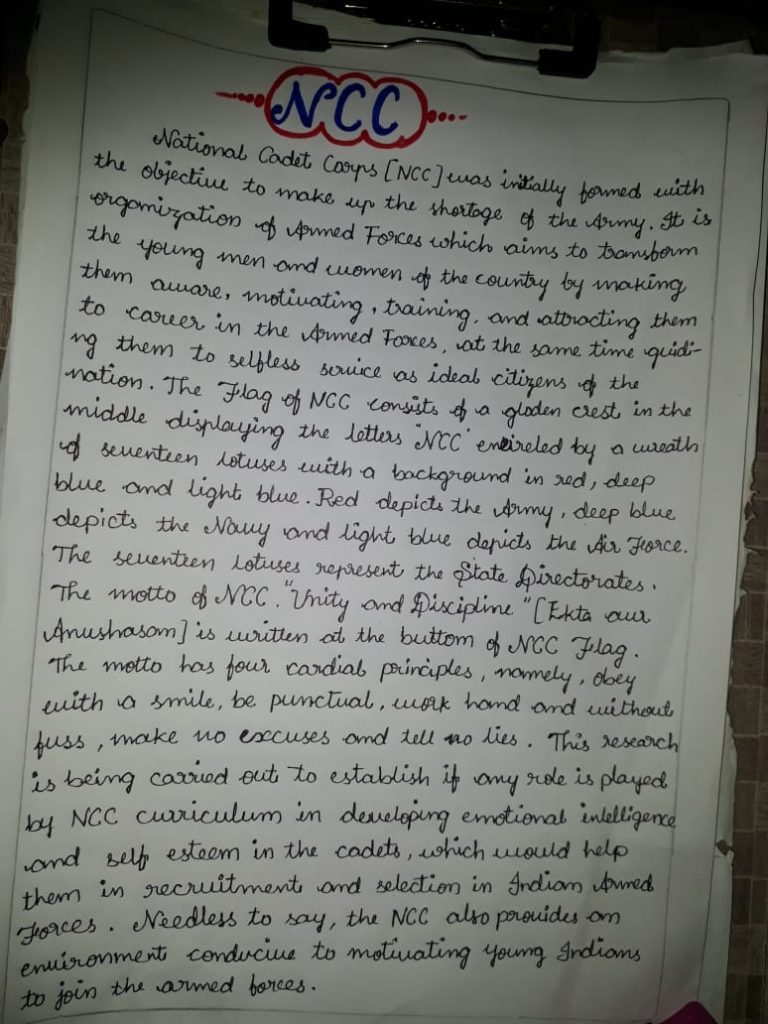 NCC
National Cadet Corps [NCC] was initially formed with
the objective to make up the shortage of the Army. It is
organization of Armed Forces which aims to transform
the young men and women of the country by making
them aware, motivating, training, and attracting them
to career in the Armed Forces, at the same time guidi-
ng them to selfless service as ideal citizens of the
nation. The Flag of NCC consists of a gloden crest in the
middle displaying the letters 'NCC' encireled by a wreath
of seventeen lotuses with a background in red, deep
blue and light blue. Red depicts the Army, deep blue
depicts the Navy and light blue depicts the Air Force.
The seventeen lotuses represent the State Directorates.
The motto of NCC. "Unity and Discipline" [Ekta aur
Anushasan] is written at the buttom of NCC Flag.
The motto has four cardial principles, namely, obey
with a smile, be punctual, work hand and without
fuss, make no excuses and tell no lies. This research
is being carried out to establish if any role is played
by NCC curriculum in developing emotional intelligence
and self esteem in the cadets, which would help
them in recruitment and selection in Indian Armed
Forces. Needless to say, the NCC also provides an
environment conducive to motivating young Indians
to join the armed forces.